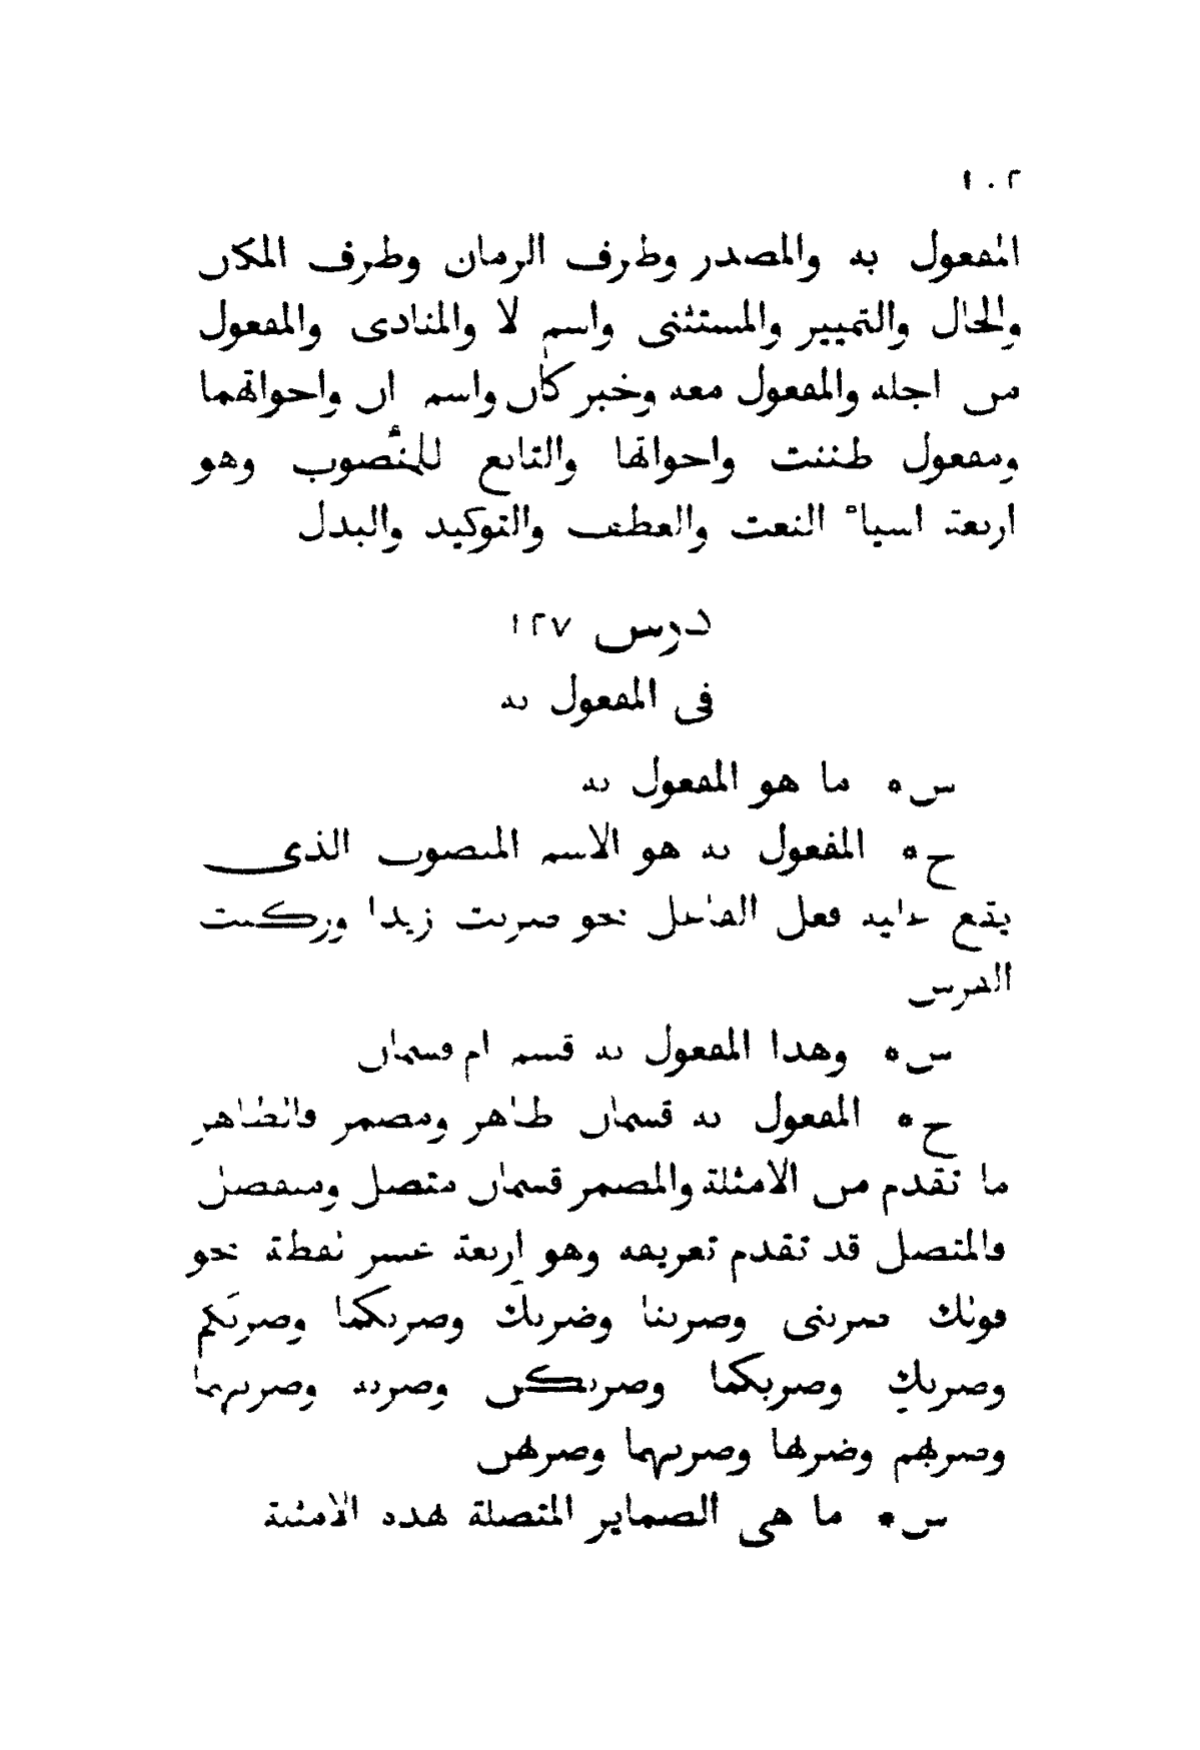 ١٠٢
المفعول به والمصدر وظرف الزمان وظرف المكان
والحال والتمييز والمستثنى واسم لا والمنادى والمفعول
من اجله والمفعول معه وخبر كان واسم ان واخواتهما
ومفعول ظننت واخواتها والتابع للمنصوب وهو
اربعة اسياء النعت والعطف والتوكيد والبدل
درس ١٢٧
فى المفعول به
س * ما هو المفعول به
ج * المفعول به هو الاسم المنصوب الذى
يقع عليه فعل الفاعل نحو ضربت زيدا وركبت
الفرس
س * وهذا المفعول به قسم ام قسمان
ج * المفعول به قسمان ظاهر ومضمر فالظاهر
ما تقدم من الامثلة والمضمر قسمان متصل ومنفصل
فالمتصل قد تقدم تعريفه وهو اربعة عسر لفظة نحو
قولك ضربنى وضربنا وضربكَ وضربكما وضربكم
وضربكِ وضربكما وضربكن وضربه وضربهما
وضربهم وضربها وضربهما وضربهن
س * ما هى الضماير المتصلة لهذه الامثلة